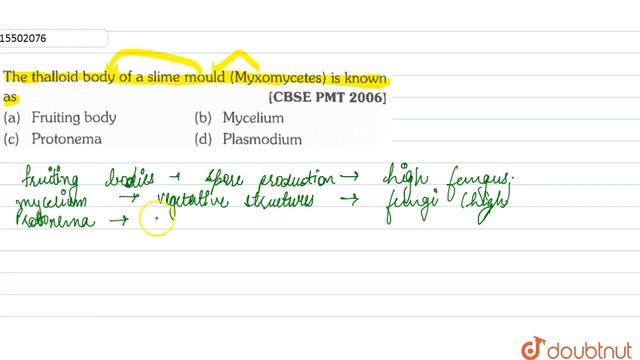 15502076
The thalloid body of a slime mould (Myxomycetes) is known
as [CBSE PMT 2006]
(a) Fruiting body (b) Mycelium
(c) Protonema (d) Plasmodium
fruiting bodies → spore production → high fungus.
mycelium → vegetative structures → fungi (high
Protonema →
doubtnut